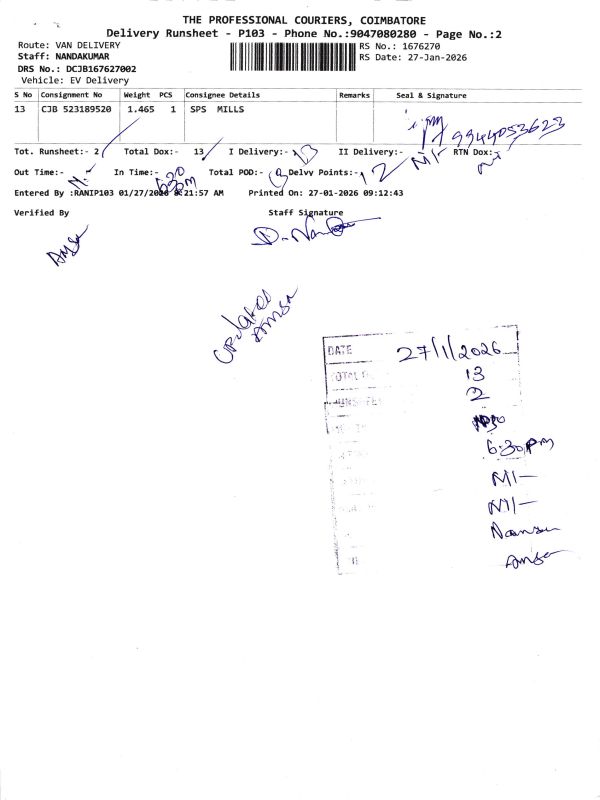 THE PROFESSIONAL COURIERS, COIMBATORE
Delivery Runsheet - P103 - Phone No.:9047080280 - Page No.:2
Route: VAN DELIVERY
Staff: NANDAKUMAR
DRS No.: DCJB167627002
Vehicle: EV Delivery
RS No.: 1676270
RS Date: 27-Jan-2026
S No Consignment No Weight PCS Consignee Details Remarks Seal & Signature
13 CJB 523189520 1.465 1 SPS MILLS
9944053623
Tot. Runsheet:- 2 Total Dox:- 13 I Delivery:- 13 II Delivery:- RTN Dox:-
Out Time:- In Time:- 6:30pm Total POD:- Delvy Points:- 12
Entered By :RANIP103 01/27/2026 8:21:57 AM Printed On: 27-01-2026 09:12:43
Verified By Staff Signature
Amsa
Updated
Amsa
DATE 27/1/2026
13
2
6:30pm
Amsa